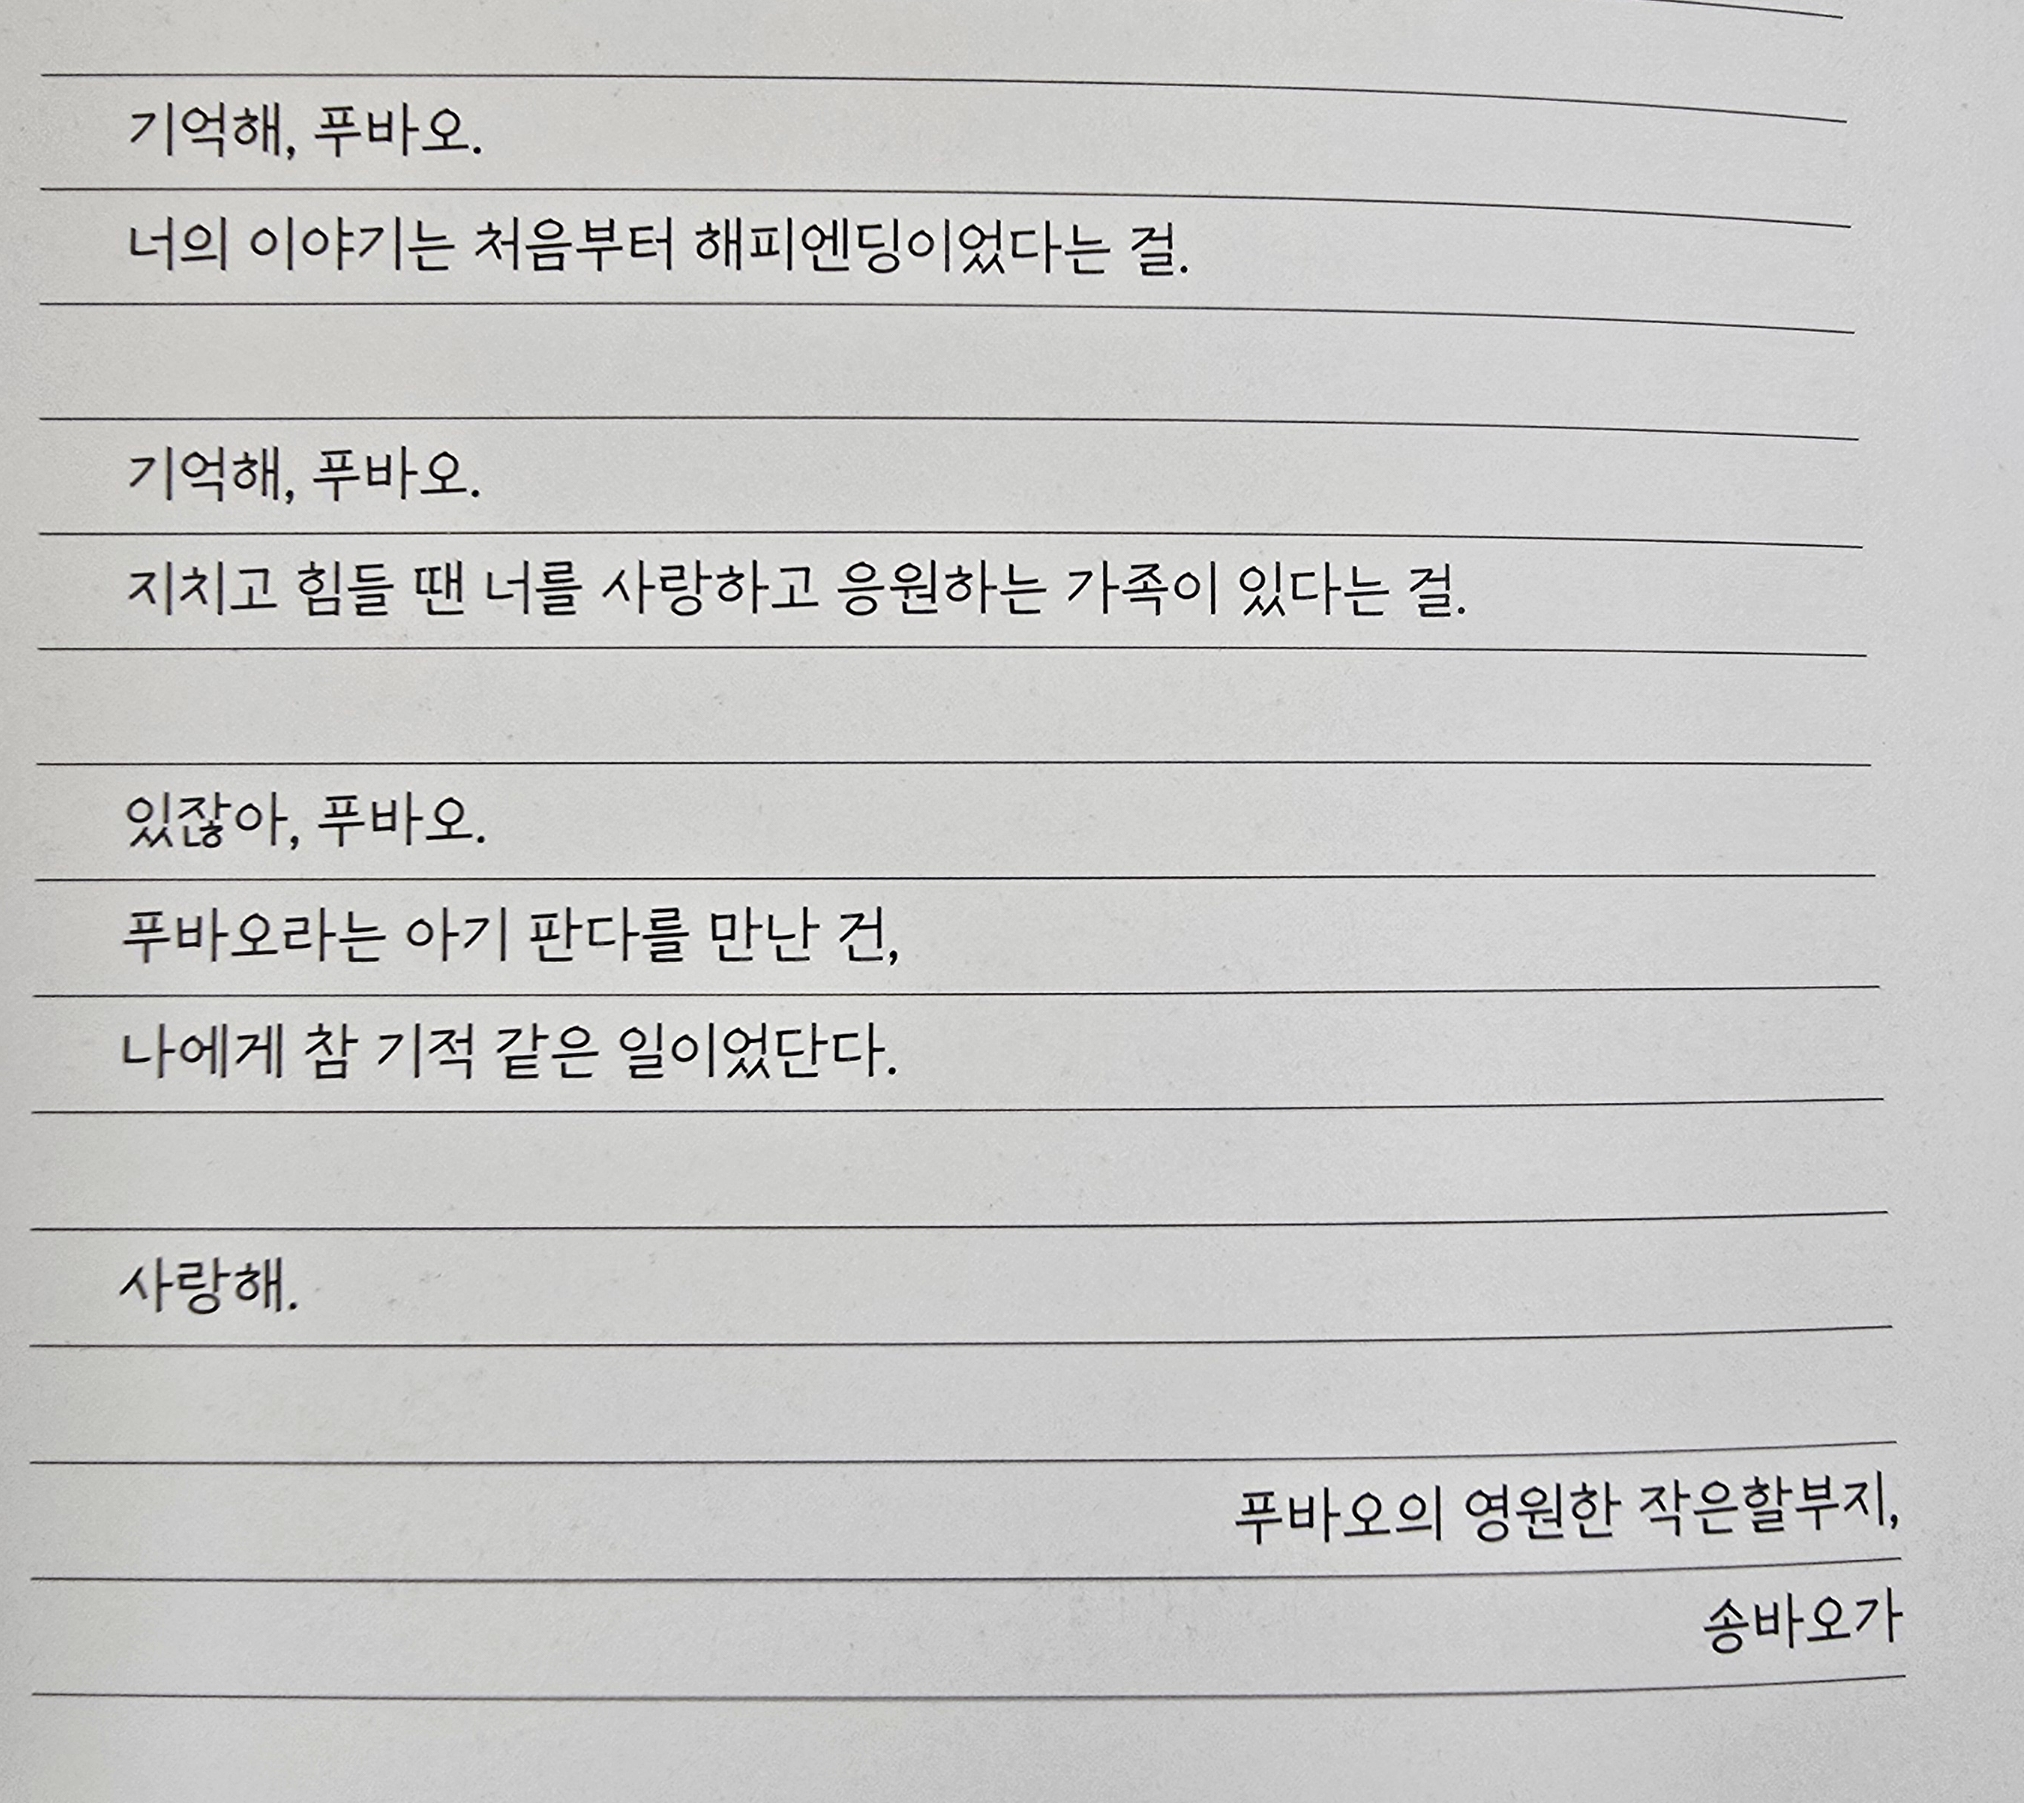 기억해, 푸바오.
너의 이야기는 처음부터 해피엔딩이었다는 걸.
기억해, 푸바오.
지치고 힘들 땐 너를 사랑하고 응원하는 가족이 있다는 걸.
있잖아, 푸바오.
푸바오라는 아기 판다를 만난 건,
나에게 참 기적 같은 일이었단다.
사랑해.
푸바오의 영원한 작은할부지,
송바오가